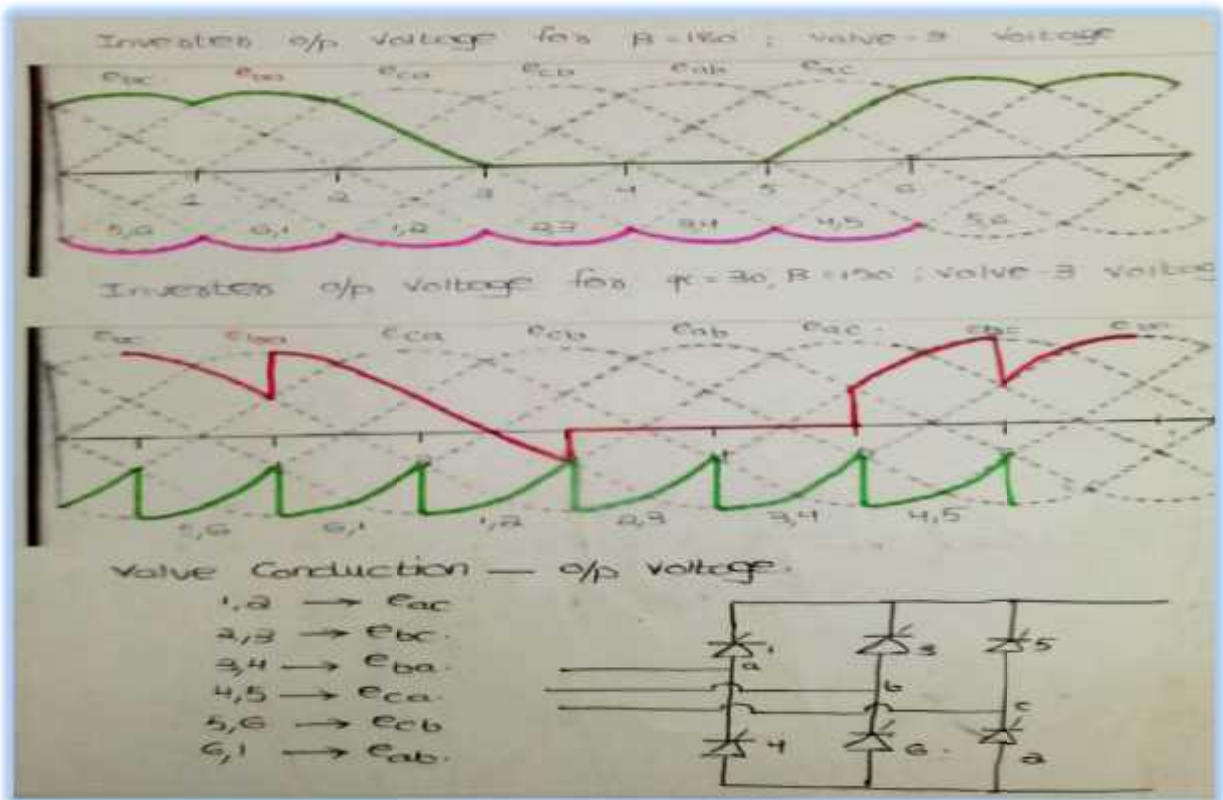 Inverter o/p voltage for β=180 ; valve-3 voltage
e_bc e_ba e_ca e_cb e_ab e_ac
1 2 3 4 5 6
5,6 6,1 1,2 2,3 3,4 4,5 5,6
Inverter o/p voltage for α=30, β=150 ; valve-3 voltag
e_ba e_ca e_cb e_ab e_ac e_bc
5,6 6,1 1,2 2,3 3,4 4,5
Valve Conduction — o/p voltage.
1,2 → e_ac
2,3 → e_bc.
3,4 → e_ba.
4,5 → e_ca.
5,6 → e_cb
6,1 → e_ab.
1 3 5
a
b
c
4 6. 2